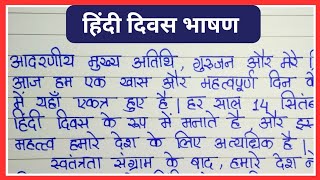 हिंदी दिवस भाषण
आदरणीय मुख्य अतिथि, गुरुजन और मेरे
आज हम एक खास और महत्वपूर्ण दिन
में यहाँ एकत्र हुए है। हर साल 14
हिंदी दिवस के रूप में मनाते है और
महत्व हमारे देश के लिए अत्यधिक है।
स्वतंत्रता संग्राम के बाद, हमारे देश